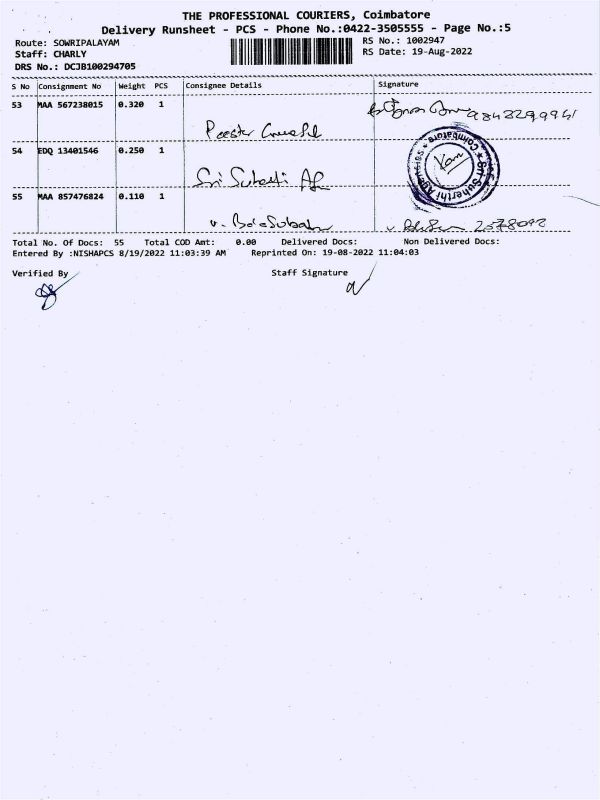 THE PROFESSIONAL COURIERS, Coimbatore
Delivery Runsheet - PCS - Phone No.:0422-3505555 - Page No.:5
Route: SOWRIPALAYAM
RS No.: 1002947
Staff: CHARLY
RS Date: 19-Aug-2022
DRS No.: DCJB100294705
S No Consignment No Weight PCS Consignee Details Signature
53 MAA 567238015 0.320 1
54 EDQ 13401546 0.250 1
Sri
Coimbatore
55 MAA 857476824 0.110 1
v.
Total No. Of Docs: 55 Total COD Amt: 0.00 Delivered Docs: Non Delivered Docs:
Entered By :NISHAPCS 8/19/2022 11:03:39 AM Reprinted On: 19-08-2022 11:04:03
Verified By Staff Signature